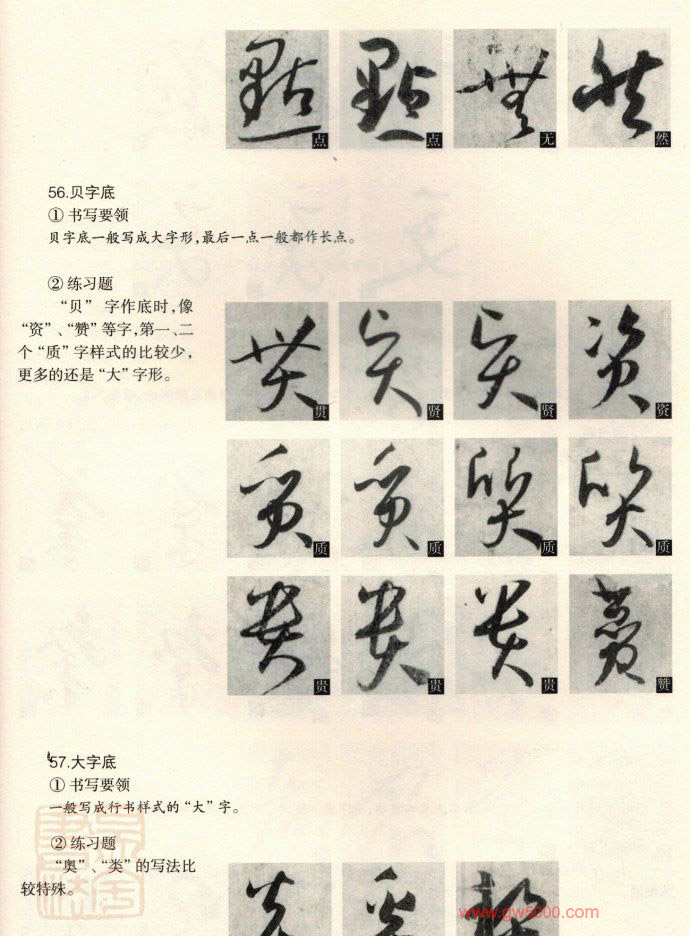 点 点 无 然
56.贝字底
① 书写要领
贝字底一般写成大字形,最后一点一般都作长点。
② 练习题
“贝” 字作底时,像
“资”、“赞”等字,第一、二
个“质”字样式的比较少,
更多的还是“大”字形。
贯 贤 贤 资
质 质 质 质
贵 贵 贵 赞
57.大字底
① 书写要领
一般写成行书样式的“大”字。
② 练习题
“奥”、“类”的写法比
较特殊。
www.gw5000.com